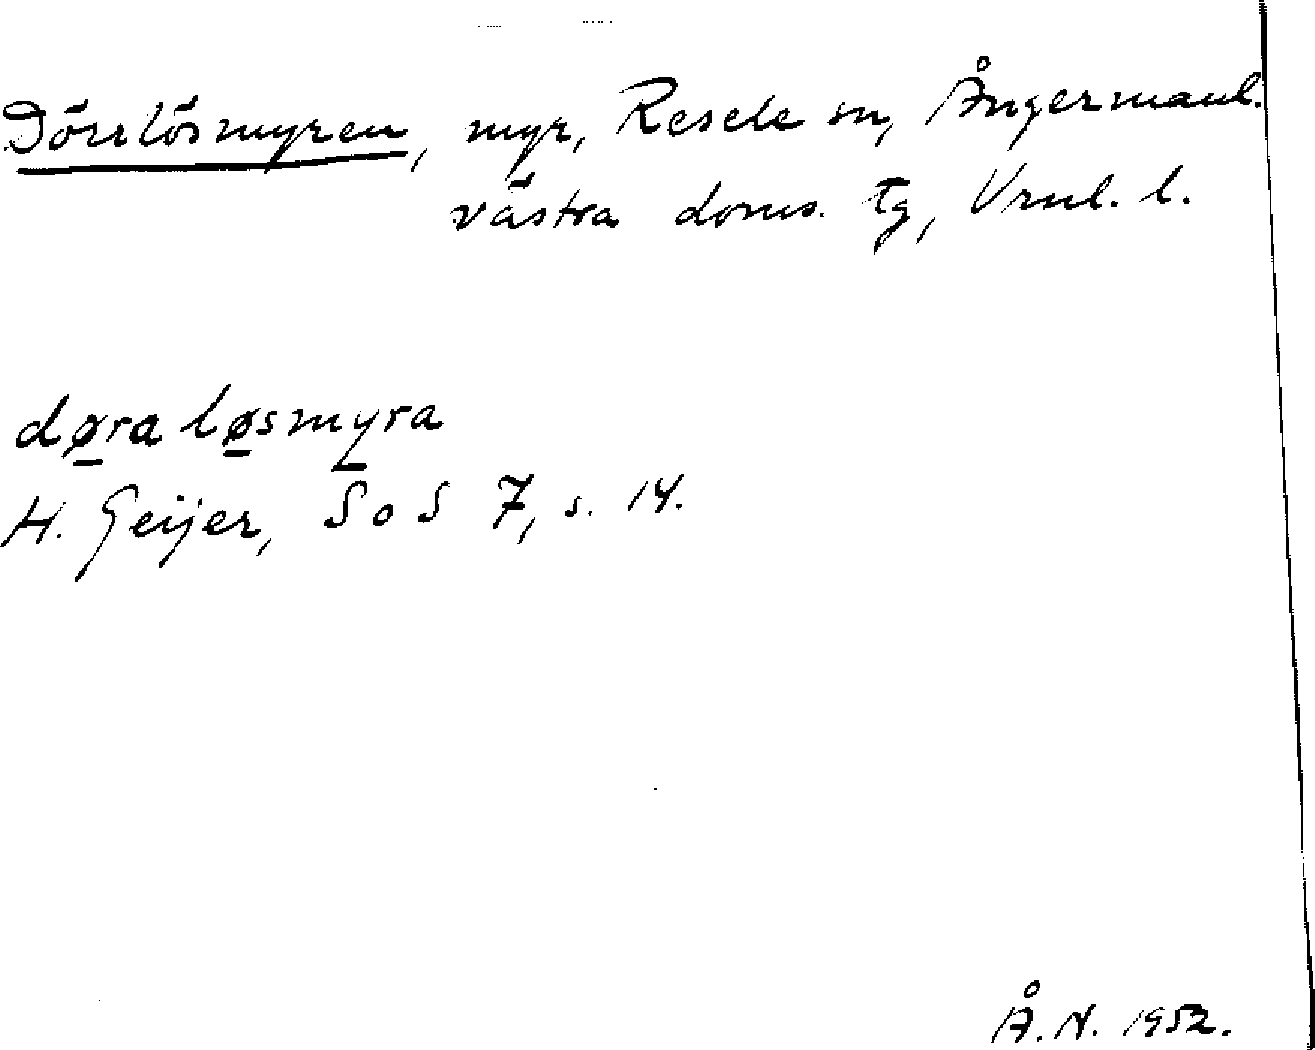 Dörrlösmyren, myr, Resele sn, Ångermanl.
västra doms. tg, Vrnl. l.
døra løsmyra
H. Geijer, SoS 7, s. 14.
Å. N. 1952.